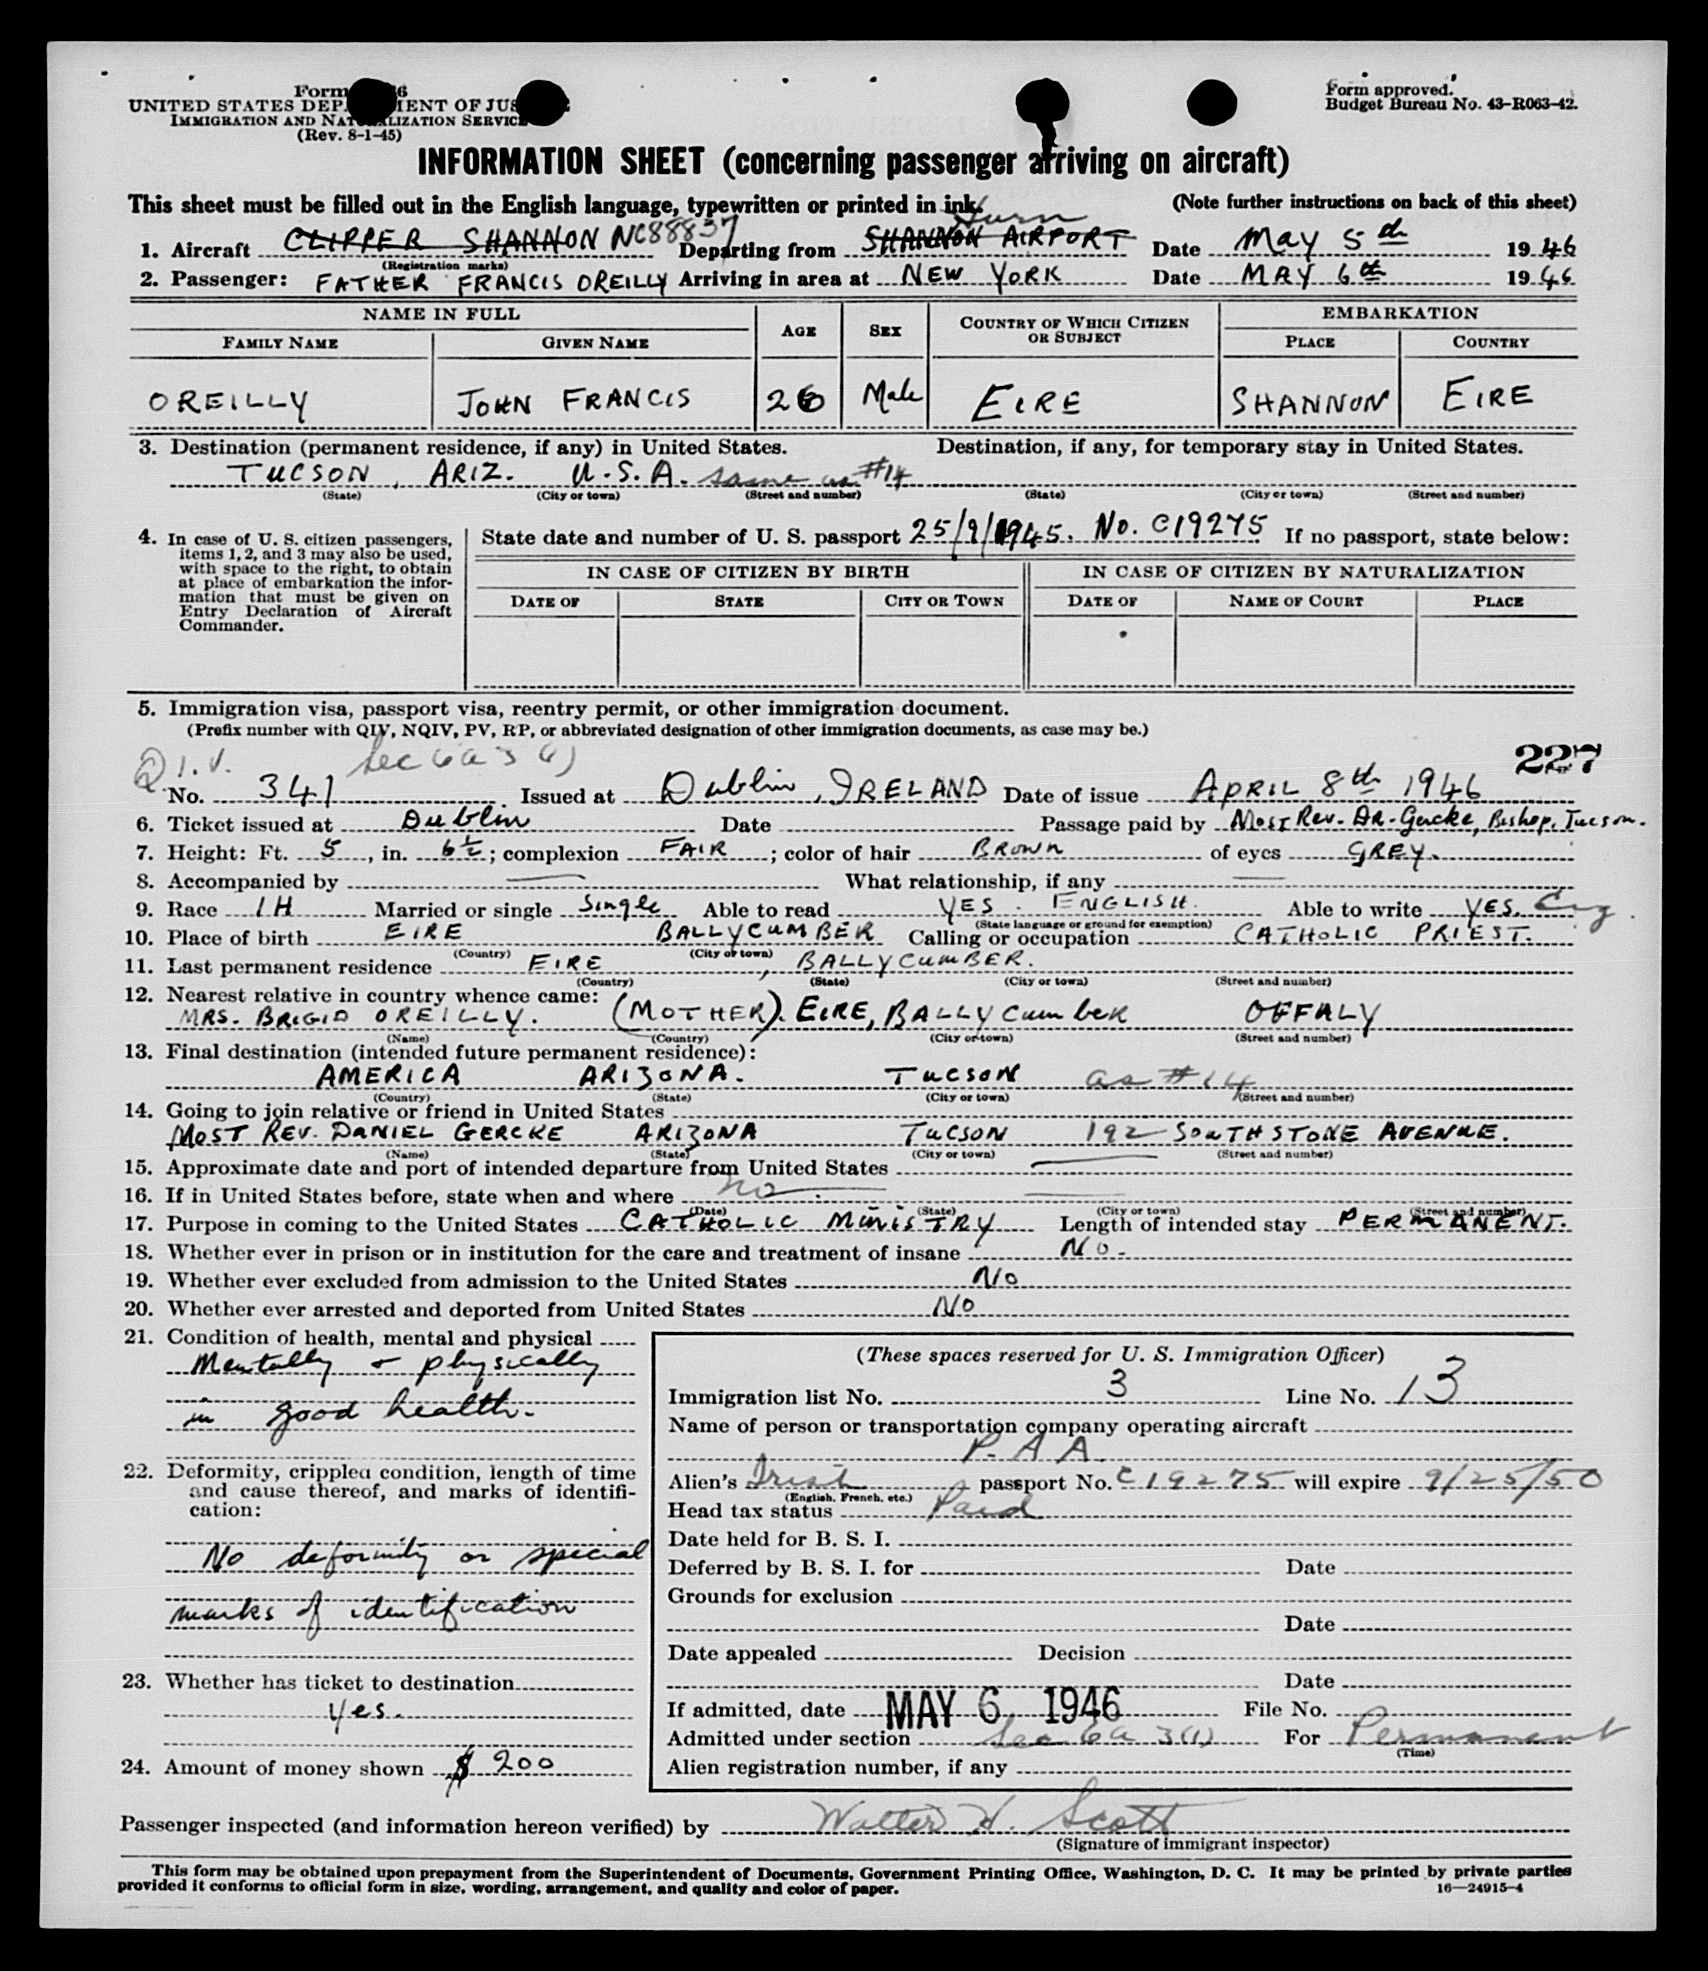 Form 6
UNITED STATES DEP MENT OF JUS
IMMIGRATION AND NAT LIZATION SERVICE
(Rev. 8-1-45)
Form approved.
Budget Bureau No. 43-R063-42.
INFORMATION SHEET (concerning passenger arriving on aircraft)
This sheet must be filled out in the English language, typewritten or printed in ink. (Note further instructions on back of this sheet)
Hurn
1. Aircraft CLIPPER SHANNON NC88837 Departing from SHANNON AIRPORT Date May 5th 1946
(Registration marks)
2. Passenger: FATHER FRANCIS OREILLY Arriving in area at NEW YORK Date MAY 6th 1946
NAME IN FULL AGE SEX COUNTRY OF WHICH CITIZEN OR SUBJECT EMBARKATION
FAMILY NAME GIVEN NAME PLACE COUNTRY
OREILLY JOHN FRANCIS 26 Male EIRE SHANNON EIRE
3. Destination (permanent residence, if any) in United States. Destination, if any, for temporary stay in United States.
TUCSON, ARIZ. U.S.A. same as #14
(State) (City or town) (Street and number) (State) (City or town) (Street and number)
4. In case of U. S. citizen passengers, items 1, 2, and 3 may also be used, with space to the right, to obtain at place of embarkation the information that must be given on Entry Declaration of Aircraft Commander.
State date and number of U. S. passport 25/9/1945. No. C19275 If no passport, state below:
IN CASE OF CITIZEN BY BIRTH IN CASE OF CITIZEN BY NATURALIZATION
DATE OF STATE CITY OR TOWN DATE OF NAME OF COURT PLACE
5. Immigration visa, passport visa, reentry permit, or other immigration document.
(Prefix number with QIV, NQIV, PV, RP, or abbreviated designation of other immigration documents, as case may be.)
Q I.V. Sec 6a 3 (1) 227
No. 341 Issued at Dublin, IRELAND Date of issue APRIL 8th 1946
6. Ticket issued at Dublin Date Passage paid by Most Rev. Dr. Gercke, Bishop, Tucson.
7. Height: Ft. 5, in. 6½; complexion FAIR; color of hair BROWN of eyes GREY.
8. Accompanied by — What relationship, if any —
9. Race IH Married or single Single Able to read YES. ENGLISH. Able to write YES. Eng.
(State language or ground for exemption)
10. Place of birth EIRE BALLYCUMBER Calling or occupation CATHOLIC PRIEST.
(Country) (City or town)
11. Last permanent residence EIRE, BALLYCUMBER.
(Country) (State) (City or town) (Street and number)
12. Nearest relative in country whence came:
MRS. BRIGID OREILLY. (MOTHER). EIRE, BALLYCumber OFFALY
(Name) (Country) (City or town) (Street and number)
13. Final destination (intended future permanent residence):
AMERICA ARIZONA. TUCSON as #14
(Country) (State) (City or town) (Street and number)
14. Going to join relative or friend in United States
MOST REV. DANIEL GERCKE ARIZONA TUCSON 192 SOUTH STONE AVENUE.
(Name) (State) (City or town) (Street and number)
15. Approximate date and port of intended departure from United States —
16. If in United States before, state when and where no —
(Date) (State) (City or town) (Street and number)
17. Purpose in coming to the United States CATHOLIC MINISTRY Length of intended stay PERMANENT.
18. Whether ever in prison or in institution for the care and treatment of insane No.
19. Whether ever excluded from admission to the United States No
20. Whether ever arrested and deported from United States No
21. Condition of health, mental and physical
Mentally + physically
in good health.
22. Deformity, crippled condition, length of time and cause thereof, and marks of identification:
No deformity or special
marks of identification
23. Whether has ticket to destination
Yes.
24. Amount of money shown $ 200
(These spaces reserved for U. S. Immigration Officer)
Immigration list No. 3 Line No. 13
Name of person or transportation company operating aircraft
P.A.A.
Alien's Irish passport No. C19275 will expire 9/25/50
(English, French, etc.)
Head tax status Paid
Date held for B. S. I.
Deferred by B. S. I. for Date
Grounds for exclusion
Date
Date appealed Decision
Date
If admitted, date MAY 6 1946 File No.
Admitted under section Sec 6a 3(1) For Permanent
(Time)
Alien registration number, if any
Passenger inspected (and information hereon verified) by Walter H. Scott
(Signature of immigrant inspector)
This form may be obtained upon prepayment from the Superintendent of Documents, Government Printing Office, Washington, D. C. It may be printed by private parties
provided it conforms to official form in size, wording, arrangement, and quality and color of paper. 16—24915-4